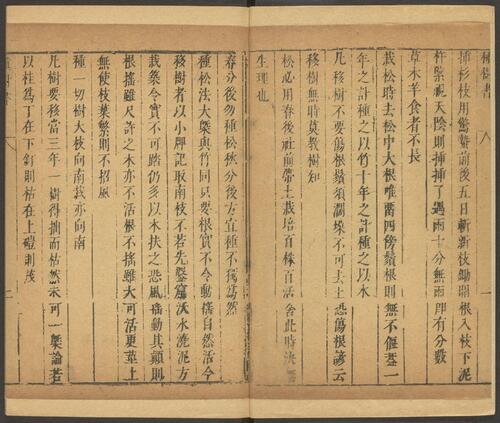 種樹書
插杉枝用驚蟄前後五日斬新枝鋤開根入枝下泥
杵緊視天陰則插插了遇雨十分無雨即有分數
草木羊食者不長
栽松時去松中大根唯畱四傍鬚根則無不偃蓋一
年之計種之以竹十年之計種之以木
凡移樹不要傷根鬚須濶垛不可去土恐傷根諺云
移樹無時莫教樹知
松必用春後社前帶土栽培百株百活舍此時決無
生理也
春分後勿種松秋分後方宜種不獨為然
種松法大槩與竹同只要根實不令動搖自然活今
移樹者以小牌記取南枝不若先鑿窟沃水澆泥方
栽築令實不可踏仍多以木扶之恐風搖動其巔則
根搖雖尺許之木亦不活根不搖雖大可活更莖上
無使枝葉繁則不招風
種一切樹大枝向南栽亦向南
凡樹要移當三年一
以桂為丁在下釘則枯在上磴則茂